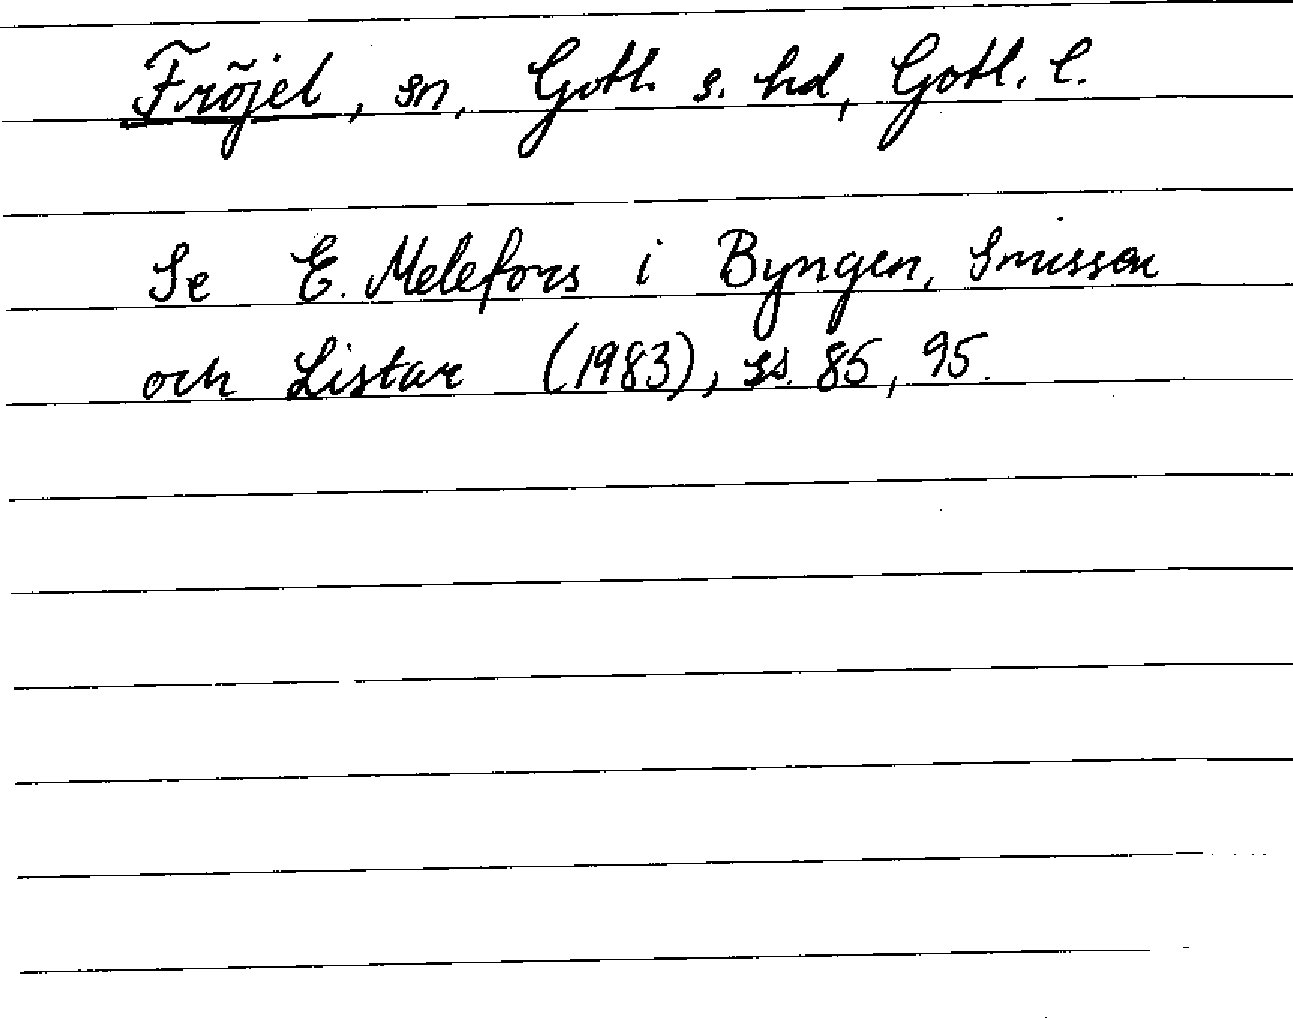 Fröjel, sn, Gotl. s. hd, Gotl. l.
Se E. Melefors i Byngen, Smissen
och Listar (1983), ss. 85, 95.